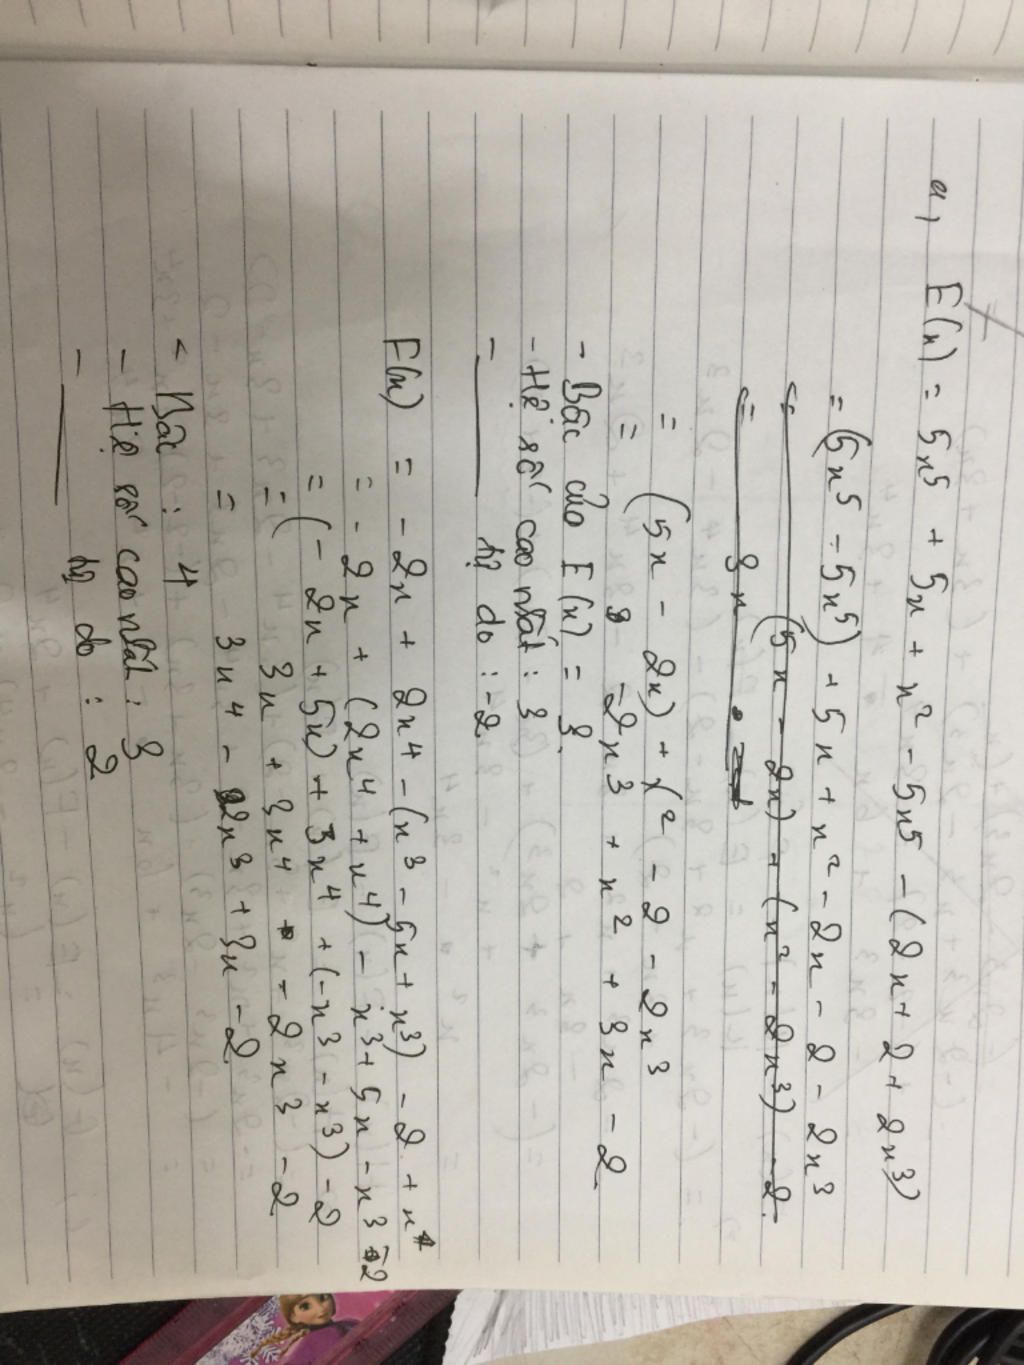 a, E(x) = 5x⁵ + 5x + x² - 5x⁵ - (2x + 2 + 2x³)
= (5x⁵ - 5x⁵) + 5x + x² - 2x - 2 - 2x³
(5x - 2x) + (x² - 2x³) - 2
= 3x
= (5x - 2x) + x² - 2 - 2x³
= -2x³ + x² + 3x - 2
- Bậc của E(x) = 3.
- Hệ số cao nhất : 3
- tự do : -2
F(x) = -2x + 2x⁴ - (x³ - 5x + x³) - 2 + x⁴
= -2x + (2x⁴ + x⁴) - x³ + 5x - x³ - 2
= (-2x + 5x) + 3x⁴ + (-x³ - x³) - 2
= 3x + 3x⁴ - 2x³ - 2
= 3x⁴ - 2x³ + 3x - 2
- Bậc : 4
- Hệ số cao nhất : 3
- tự do : 2